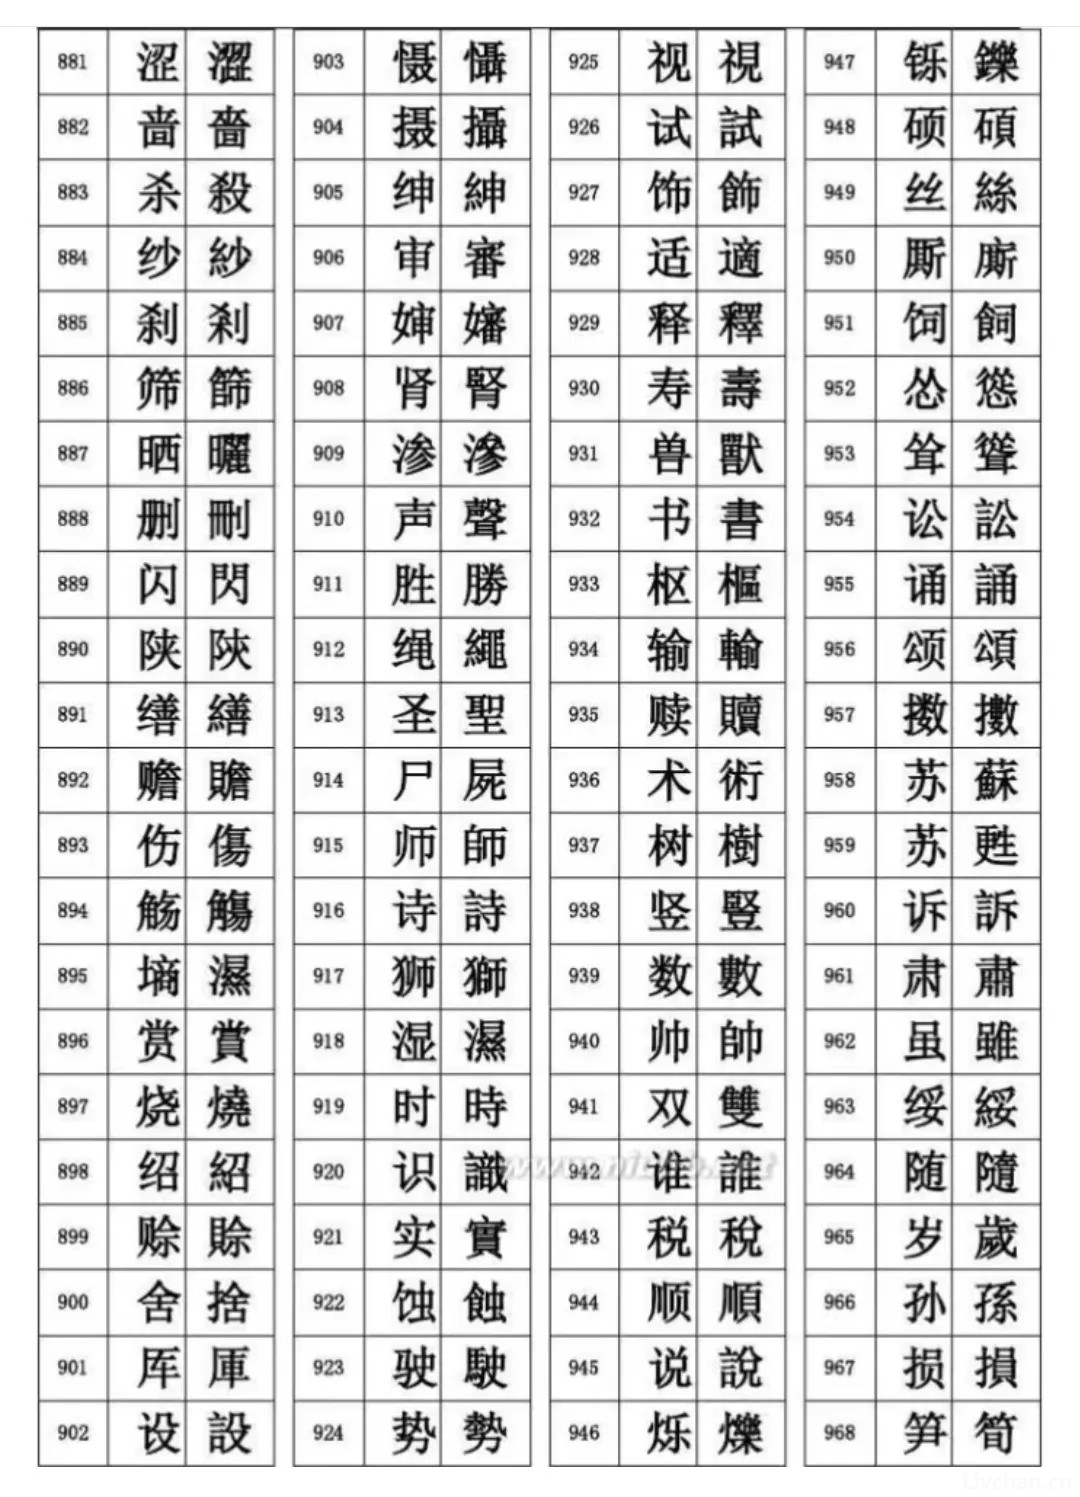 881 涩 澀
882 啬 嗇
883 杀 殺
884 纱 紗
885 刹 剎
886 筛 篩
887 晒 曬
888 删 刪
889 闪 閃
890 陕 陝
891 缮 繕
892 赡 贍
893 伤 傷
894 觞 觴
895 墒 濕
896 赏 賞
897 烧 燒
898 绍 紹
899 赊 賒
900 舍 捨
901 厍 厙
902 设 設
903 慑 懾
904 摄 攝
905 绅 紳
906 审 審
907 婶 嬸
908 肾 腎
909 渗 滲
910 声 聲
911 胜 勝
912 绳 繩
913 圣 聖
914 尸 屍
915 师 師
916 诗 詩
917 狮 獅
918 湿 濕
919 时 時
920 识 識
921 实 實
922 蚀 蝕
923 驶 駛
924 势 勢
925 视 視
926 试 試
927 饰 飾
928 适 適
929 释 釋
930 寿 壽
931 兽 獸
932 书 書
933 枢 樞
934 输 輸
935 赎 贖
936 术 術
937 树 樹
938 竖 豎
939 数 數
940 帅 帥
941 双 雙
942 谁 誰
943 税 稅
944 顺 順
945 说 說
946 烁 爍
947 铄 鑠
948 硕 碩
949 丝 絲
950 厮 廝
951 饲 飼
952 怂 慫
953 耸 聳
954 讼 訟
955 诵 誦
956 颂 頌
957 擞 擻
958 苏 蘇
959 苏 甦
960 诉 訴
961 肃 肅
962 虽 雖
963 绥 綏
964 随 隨
965 岁 歲
966 孙 孫
967 损 損
968 笋 筍
Livchan.cn